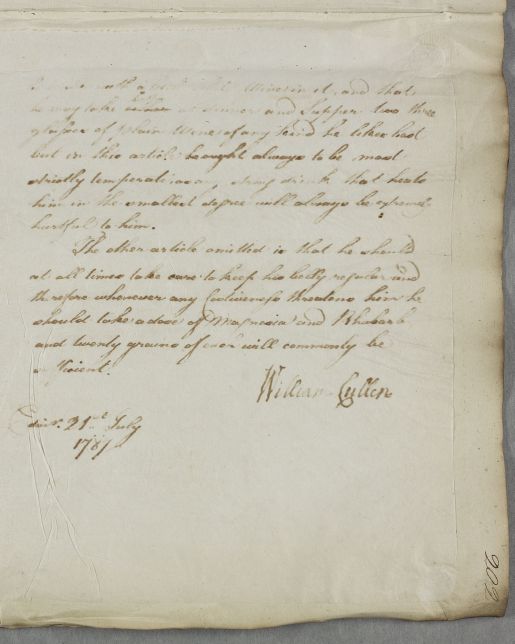 with a white Wine in it, and that
he may take either at dinner and Supper two three
glasses of plain Wine of any kind he likes best
but in this article he ought always to be most
strictly temperate as any strong drink that heats
him in the smallest degree will always be extremely
hurtful to him.
The other article omitted is that he should
at all times take care to keep his belly regular and
therefore whenever any Costiveness threatens him he
should take a dose of Magnesia and Rhubarb
and twenty grains of each will commonly be
sufficient.
William Cullen
Edinr. 21st July
1781
902